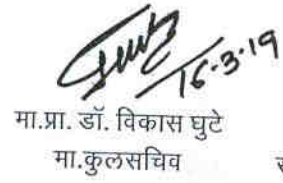 16-3-19
मा.प्रा. डॉ. विकास घुटे
मा.कुलसचिव